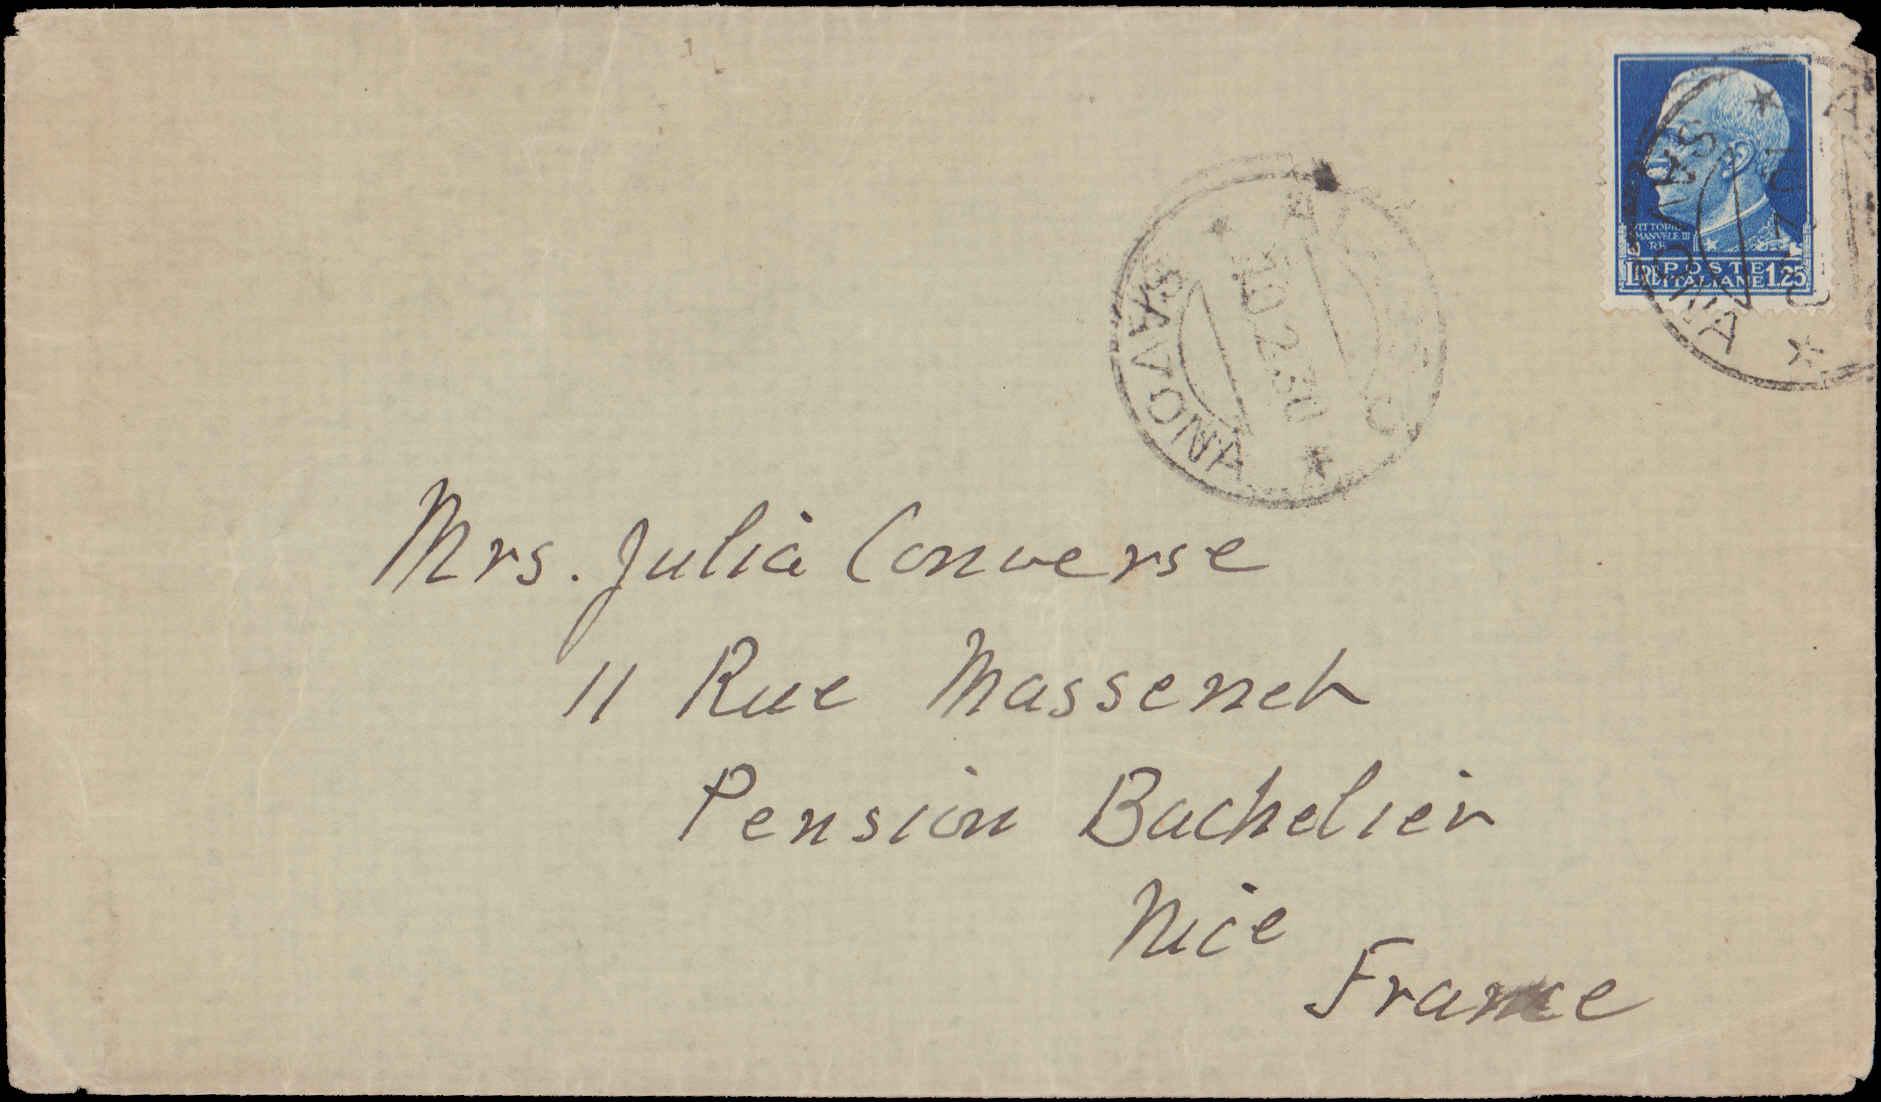 VITTORIO
EMANVELE III
RE
POSTE
LIRE ITALIANE 1.25
SAVONA
10.2.30
SAVONA
Mrs. Julia Converse
11 Rue Massenet
Pension Bachelier
Nice
France